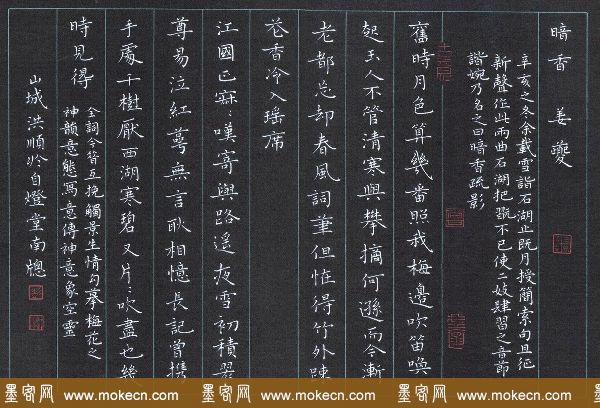 暗香 姜夔
辛亥之冬余載雪詣石湖止既月授簡索句且征
新聲作此兩曲石湖把翫不已使二妓肄習之音節
諧婉乃名之曰暗香疏影
舊時月色算幾番照我梅邊吹笛喚
起玉人不管清寒與攀摘何遜而今漸
老都忘却春風詞筆但怪得竹外疎
花香冷入瑤席
江國正寂〻嘆寄與路遥夜雪初積翠
尊易泣紅萼無言耿相憶長記曾携
手處千樹壓西湖寒碧又片〻吹盡也幾
時見得
全詞今昔互挽觸景生情句摹梅花之
神韻意態寫意傳神意象空靈
山城洪順 自燈堂南牕
墨客网 www.mokecn.com 墨客网 www.mokecn.com 墨客网 www.mokecn.com